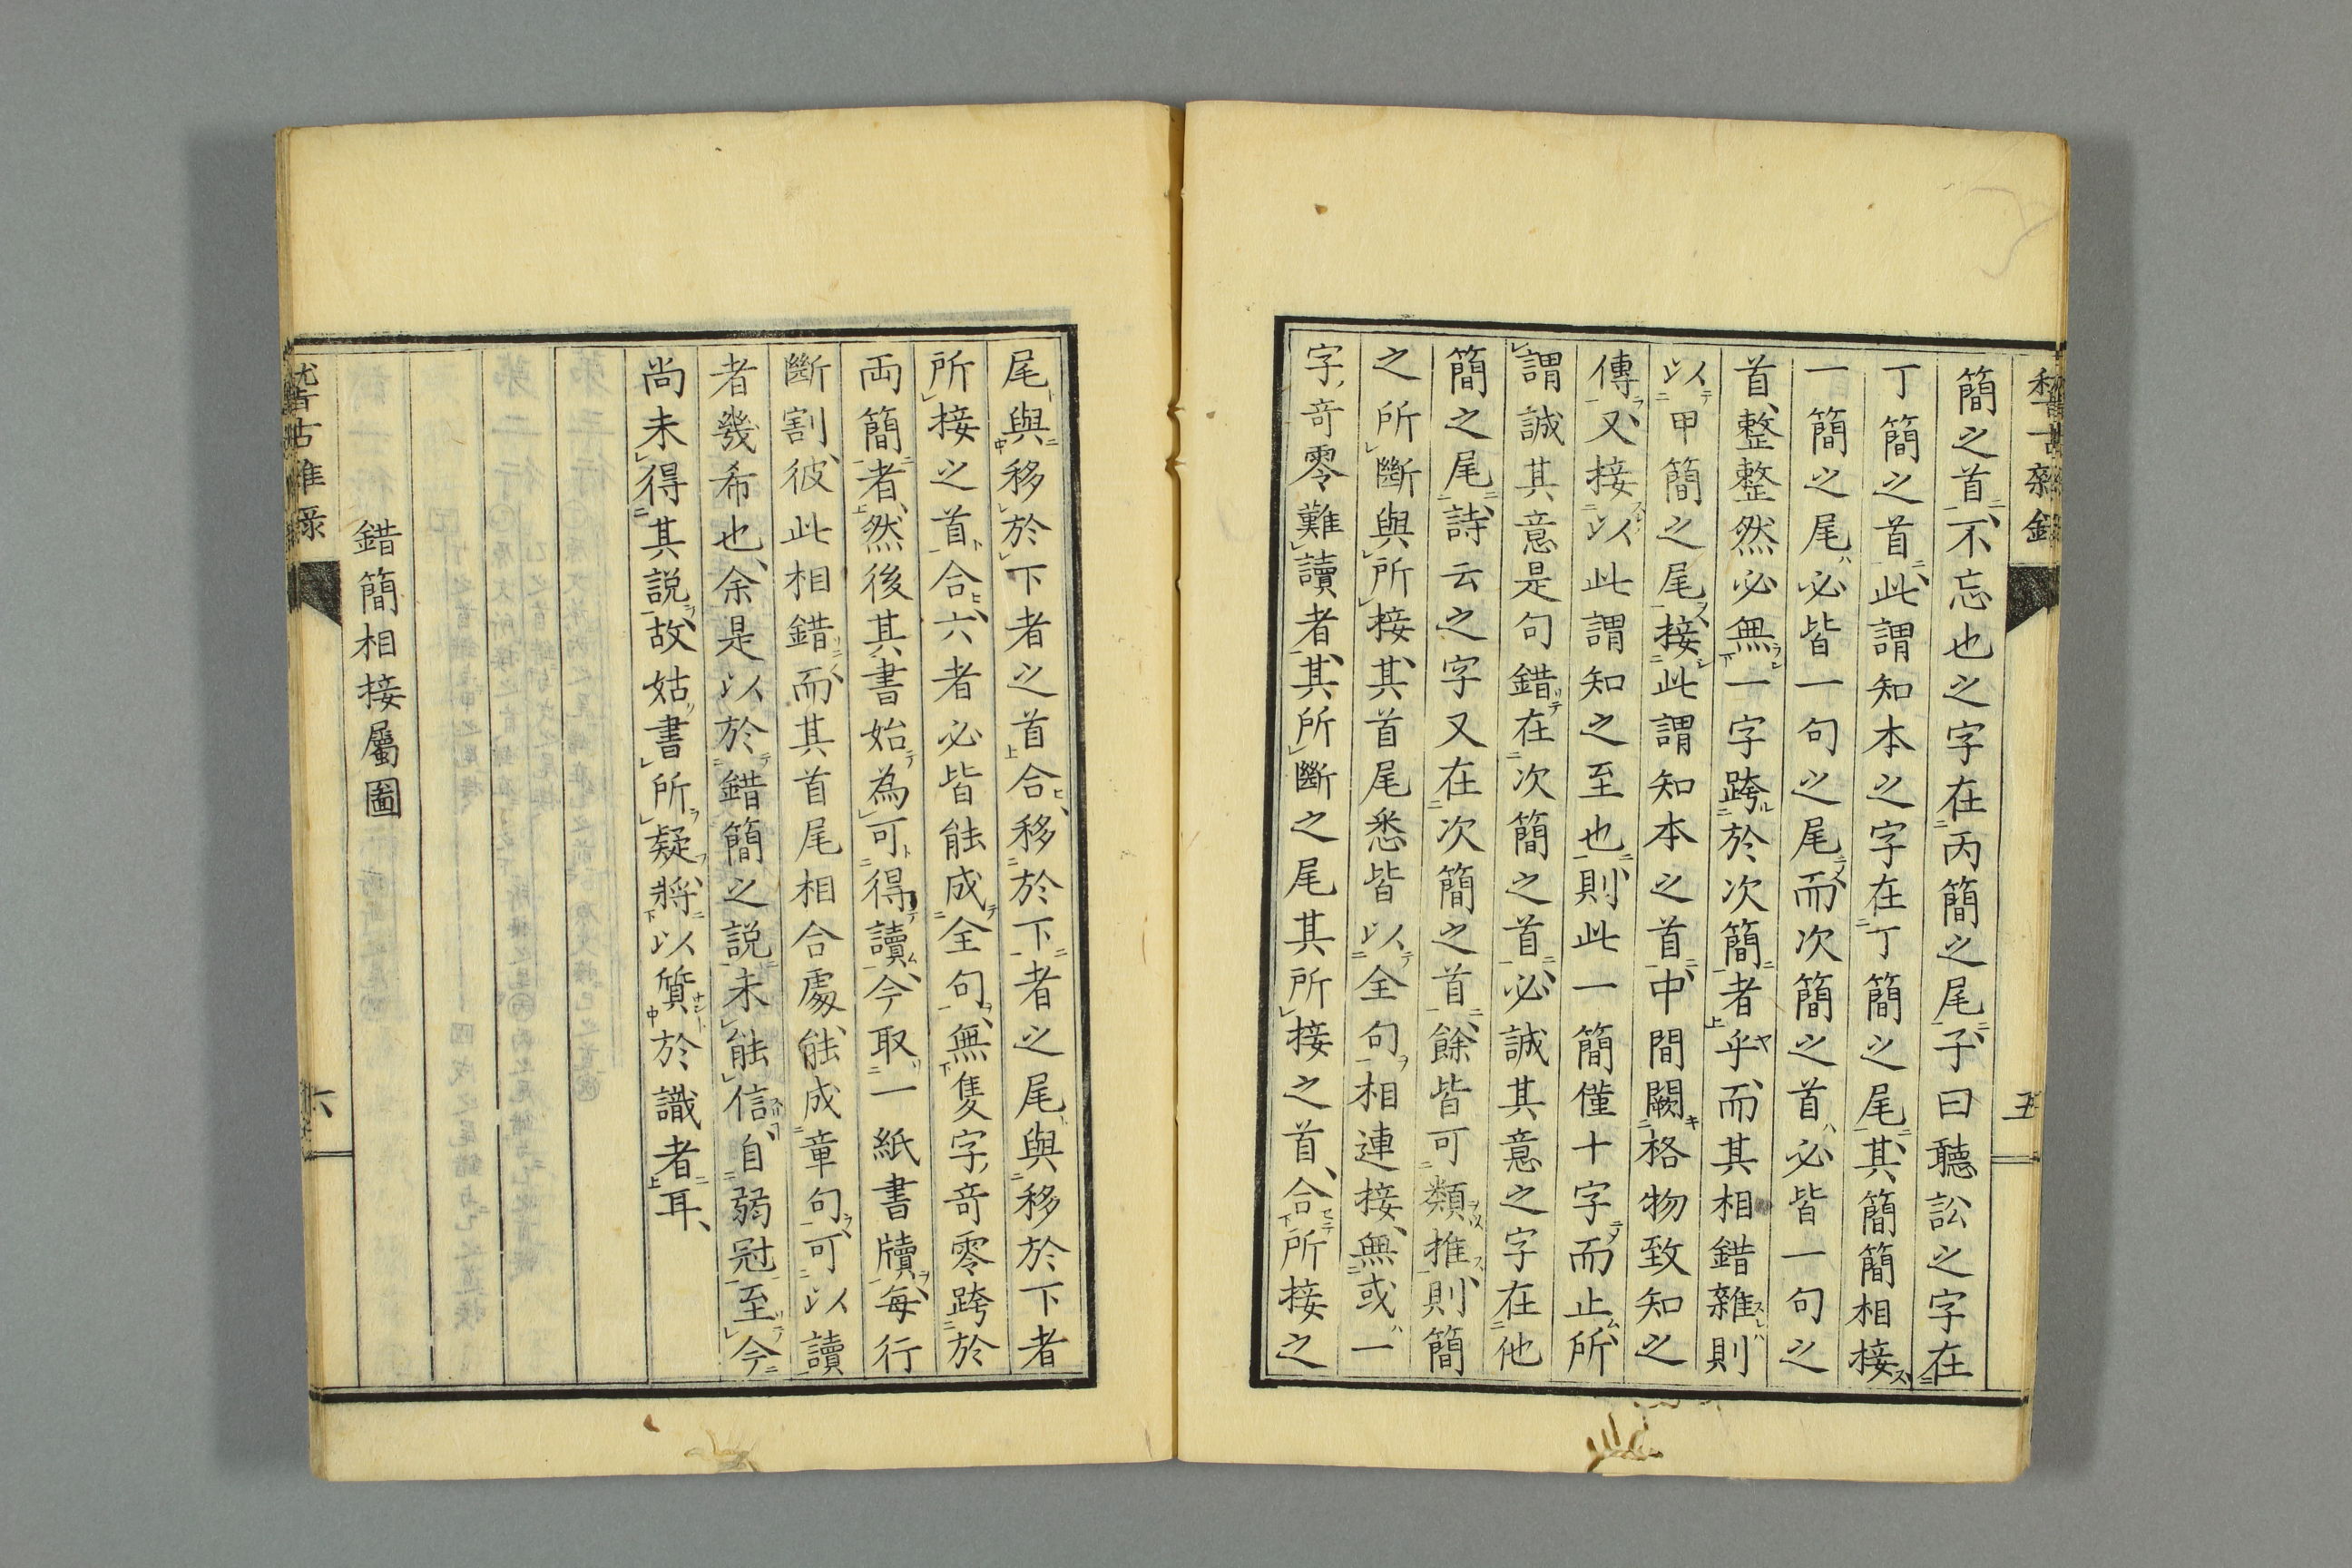 簡之首、不忘也之字在丙簡之尾、子曰聽訟之字在
丁簡之首、此謂知本之字在丁簡之尾、其簡簡相接
一簡之尾必皆一句之尾、而次簡之首必皆一句之
首、整整然必無一字跨於次簡者乎、而其相錯雜則
以甲簡之尾接此謂知本之首、中間闕格物致知之
傳、又接以此謂知之至也、則此一簡僅十字而止、所
謂誠其意是句錯在次簡之首、必誠其意之字在他
簡之尾、詩云之字又在次簡之首、餘皆可類推、則簡
之所斷與所接、其首尾悉皆以全句相連接、無或一
字奇零難讀者、其所斷之尾其所接之首、合所接之
五
尾與移於下者之首合、移於下者之尾與移於下者
所接之首合、六者必皆能成全句、無隻字奇零跨於
両簡者、然後其書始為可得讀、今取一紙書牘、每行
斷割、彼此相錯而其首尾相合處、能成章句、可以讀
者幾希也、余是以於錯簡之説未能信、自弱冠至今
尚未得其説、故姑書所疑、將以質於識者耳、
錯簡相接屬圖
六